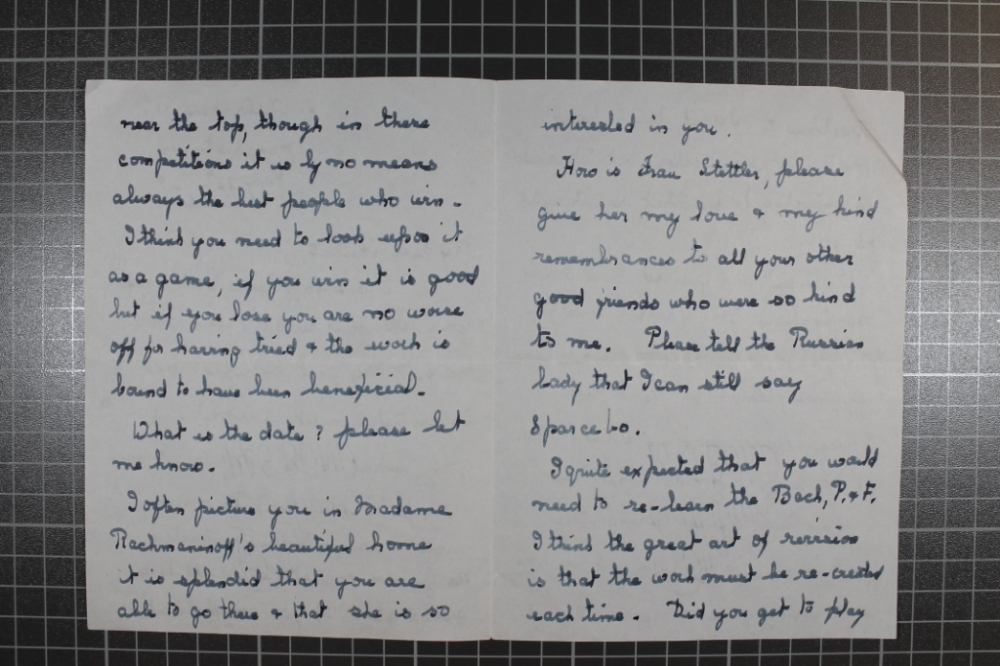 near the top, though in these
competitions it is by no means
always the best people who win.
I think you need to look upon it
as a game, if you win it is good
but if you lose you are no worse
off for having tried & the work is
bound to have been beneficial.
What is the date? please let
me know.
I often picture you in Madame
Rachmaninoff's beautiful home
it is splendid that you are
able to go there & that she is so
interested in you.
How is Frau Stettler, please
give her my love & my kind
remembrances to all your other
good friends who were so kind
to me. Please tell the Russian
lady that I can still say
Sparcebo.
I quite expected that you would
need to re-learn the Bach, P. & F.
I think the great art of revision
is that the work must be re-created
each time. Did you get to play